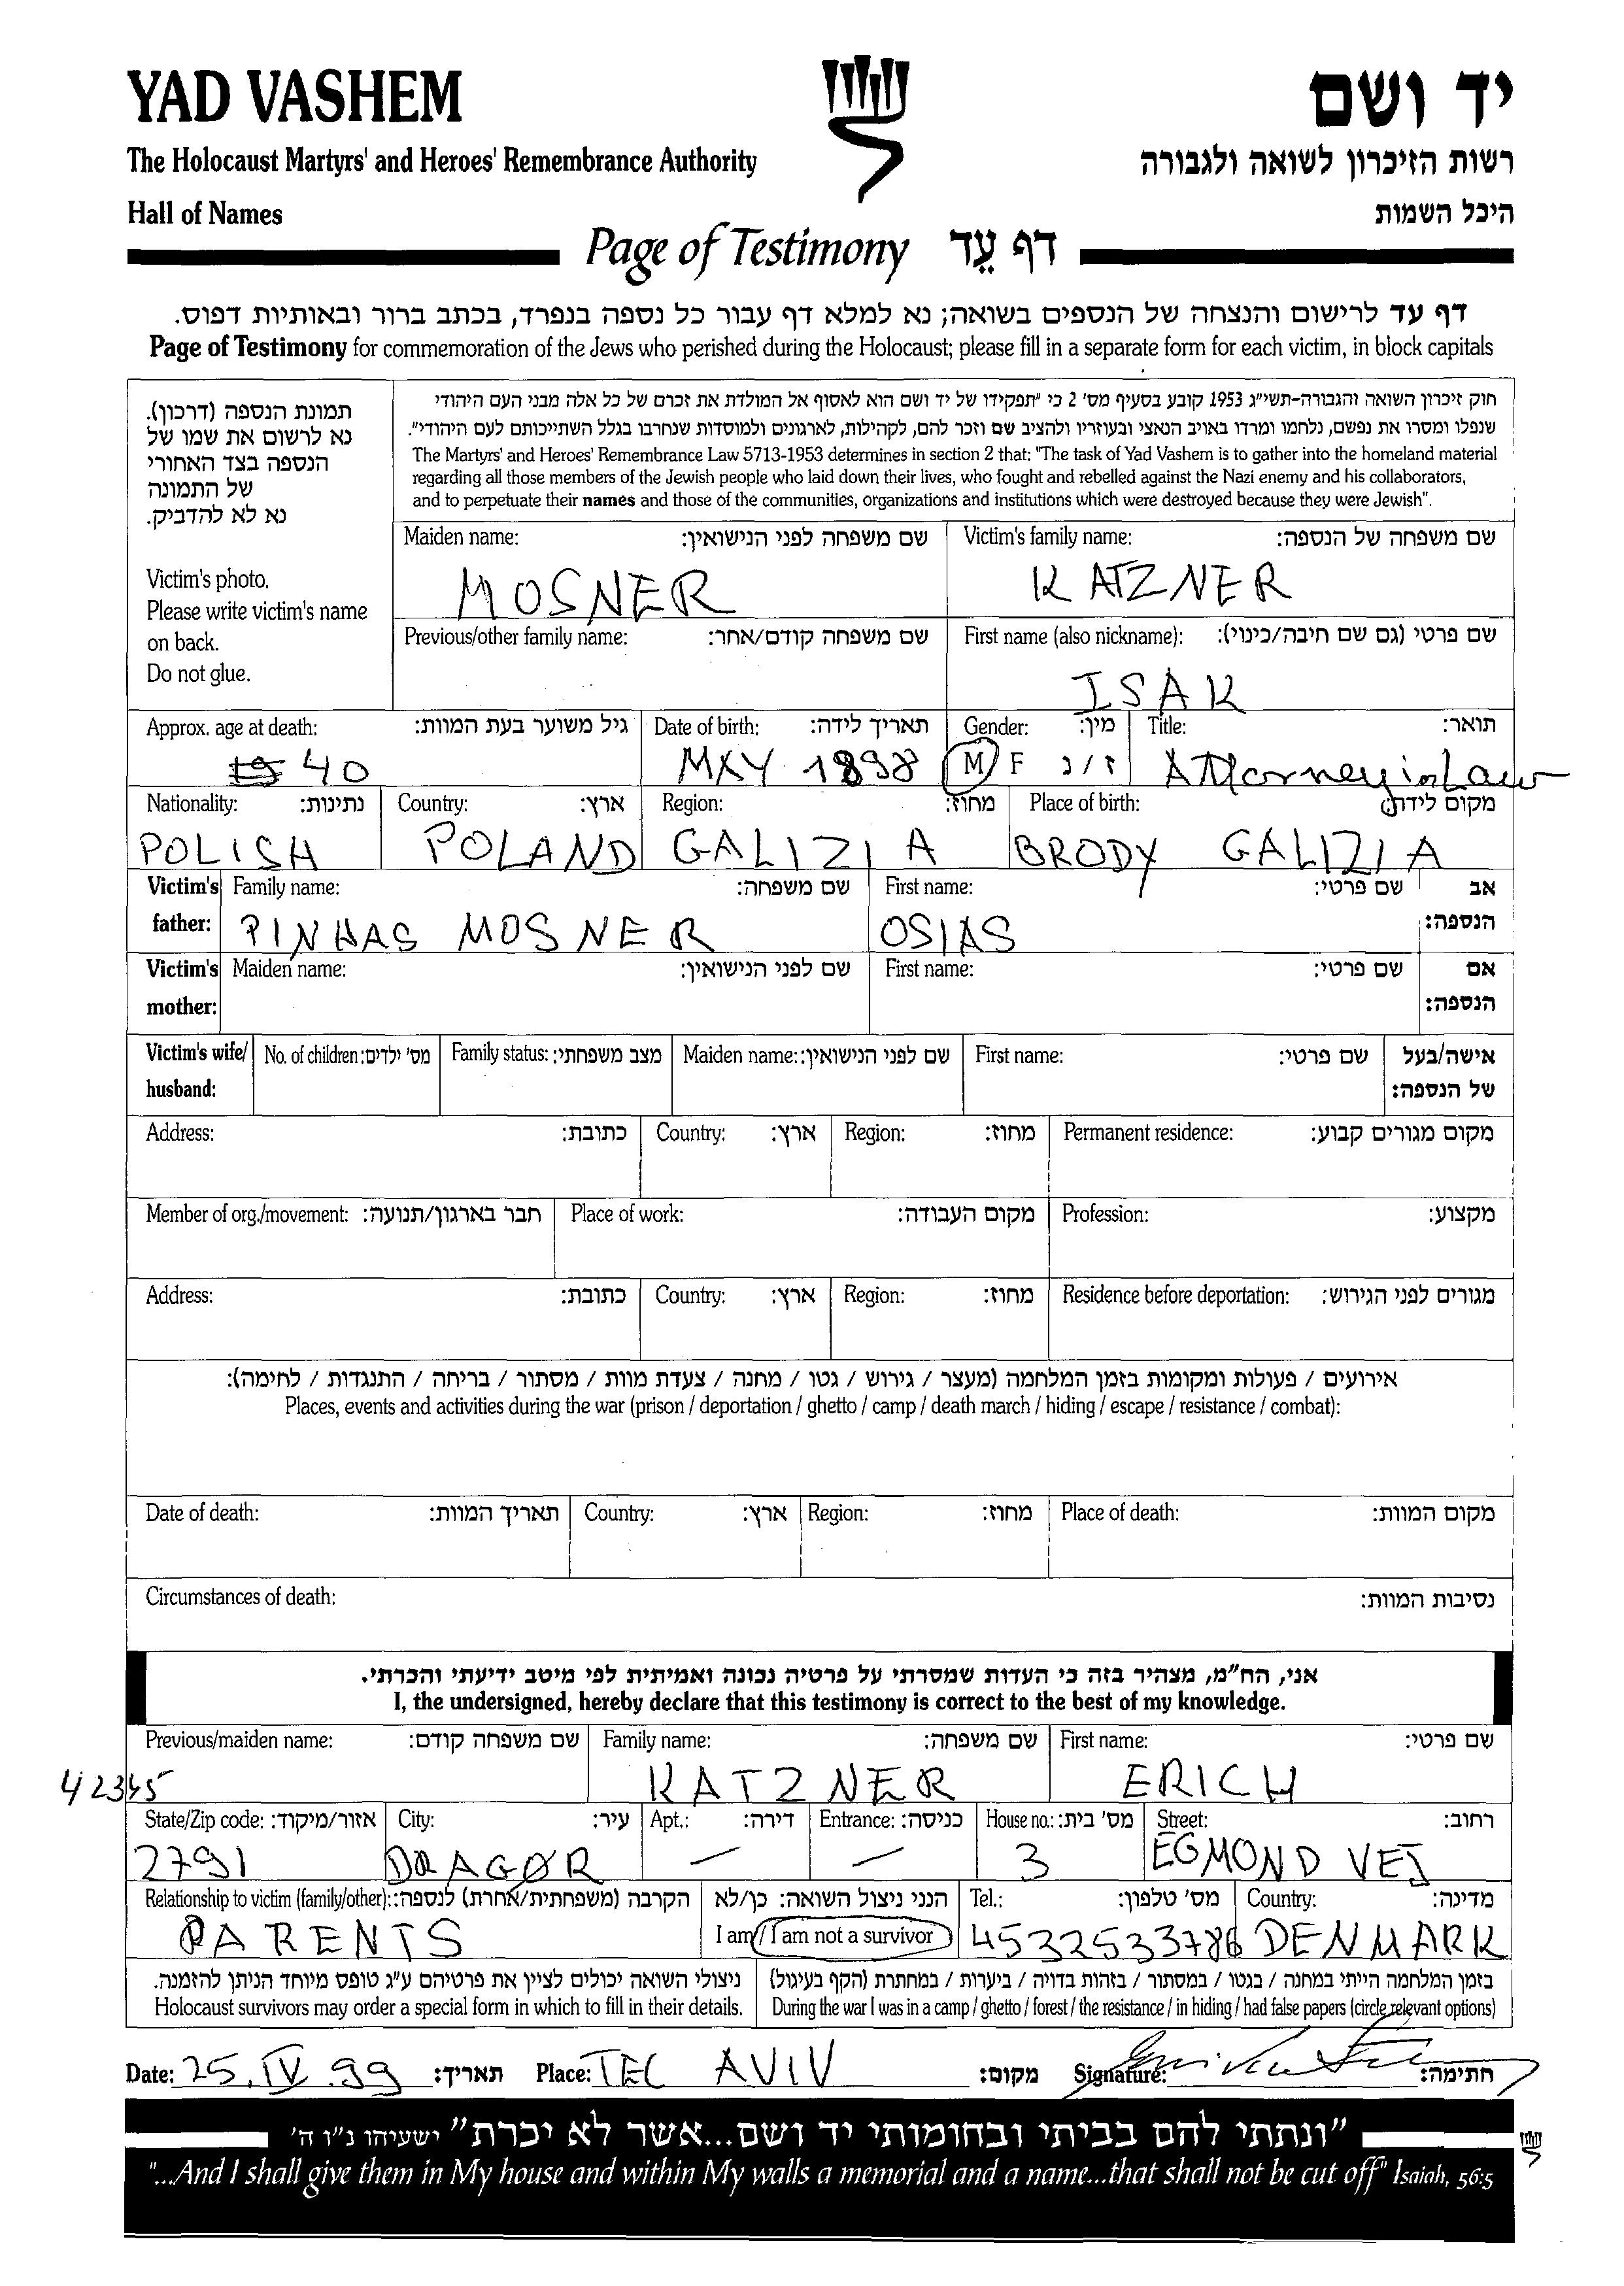 YAD VASHEM
יד ושם
The Holocaust Martyrs' and Heroes' Remembrance Authority
רשות הזיכרון לשואה ולגבורה
Hall of Names
היכל השמות
Page of Testimony דף עֵד
דף עד לרישום והנצחה של הנספים בשואה; נא למלא דף עבור כל נספה בנפרד, בכתב ברור ובאותיות דפוס.
Page of Testimony for commemoration of the Jews who perished during the Holocaust; please fill in a separate form for each victim, in block capitals
תמונת הנספה (דרכון).
נא לרשום את שמו של
הנספה בצד האחורי
של התמונה
נא לא להדביק.
Victim's photo.
Please write victim's name
on back.
Do not glue.
חוק זיכרון השואה והגבורה-תשי"ג 1953 קובע בסעיף מס' 2 כי "תפקידו של יד ושם הוא לאסוף אל המולדת את זכרם של כל אלה מבני העם היהודי
שנפלו ומסרו את נפשם, נלחמו ומרדו באויב הנאצי ובעוזריו ולהציב שם וזכר להם, לקהילות, לארגונים ולמוסדות שנחרבו בגלל השתייכותם לעם היהודי".
The Martyrs' and Heroes' Remembrance Law 5713-1953 determines in section 2 that: "The task of Yad Vashem is to gather into the homeland material
regarding all those members of the Jewish people who laid down their lives, who fought and rebelled against the Nazi enemy and his collaborators,
and to perpetuate their names and those of the communities, organizations and institutions which were destroyed because they were Jewish".
Maiden name: שם משפחה לפני הנישואין: Victim's family name: שם משפחה של הנספה:
MOSNER KATZNER
Previous/other family name: שם משפחה קודם/אחר: First name (also nickname): שם פרטי (גם שם חיבה/כינוי):
ISAK
Approx. age at death: גיל משוער בעת המוות: Date of birth: תאריך לידה: Gender: מין: Title: תואר:
40 MAY 1898 M F ז/נ Attorney in Law
Nationality: נתינות: Country: ארץ: Region: מחוז: Place of birth: מקום לידה:
POLISH POLAND GALIZIA BRODY GALIZIA
Victim's father: Family name: שם משפחה: First name: שם פרטי: אב הנספה:
PINHAS MOSNER OSIAS
Victim's mother: Maiden name: שם לפני הנישואין: First name: שם פרטי: אם הנספה:
Victim's wife/ husband: No. of children: מס' ילדים: Family status: מצב משפחתי: Maiden name: שם לפני הנישואין: First name: שם פרטי: אישה/בעל של הנספה:
Address: כתובת: Country: ארץ: Region: מחוז: Permanent residence: מקום מגורים קבוע:
Member of org./movement: חבר בארגון/תנועה: Place of work: מקום העבודה: Profession: מקצוע:
Address: כתובת: Country: ארץ: Region: מחוז: Residence before deportation: מגורים לפני הגירוש:
אירועים / פעולות ומקומות בזמן המלחמה (מעצר / גירוש / גטו / מחנה / צעדת מוות / מסתור / בריחה / התנגדות / לחימה):
Places, events and activities during the war (prison / deportation / ghetto / camp / death march / hiding / escape / resistance / combat):
Date of death: תאריך המוות: Country: ארץ: Region: מחוז: Place of death: מקום המוות:
Circumstances of death: נסיבות המוות:
אני, הח"מ, מצהיר בזה כי העדות שמסרתי על פרטיה נכונה ואמיתית לפי מיטב ידיעתי והכרתי.
I, the undersigned, hereby declare that this testimony is correct to the best of my knowledge.
Previous/maiden name: שם משפחה קודם: Family name: שם משפחה: First name: שם פרטי:
42345 KATZNER ERICH
State/Zip code: אזור/מיקוד: City: עיר: Apt.: דירה: Entrance: כניסה: House no.: מס' בית: Street: רחוב:
2791 DRAGØR — — 3 EGMOND VEJ
Relationship to victim (family/other): הקרבה (משפחתית/אחרת) לנספה: הנני ניצול השואה: כן/לא Tel.: מס' טלפון: Country: מדינה:
PARENTS I am / I am not a survivor 4532533786 DENMARK
ניצולי השואה יכולים לציין את פרטיהם ע"ג טופס מיוחד הניתן להזמנה.
Holocaust survivors may order a special form in which to fill in their details.
בזמן המלחמה הייתי במחנה / בגטו / במסתור / בזהות בדויה / ביערות / במחתרת (הקף בעיגול)
During the war I was in a camp / ghetto / forest / the resistance / in hiding / had false papers (circle relevant options)
Date: 25.IV.99 תאריך: Place: TEL AVIV מקום: Signature: חתימה:
"ונתתי להם בביתי ובחומותי יד ושם...אשר לא יכרת" ישעיהו נ"ו ה'
"...And I shall give them in My house and within My walls a memorial and a name...that shall not be cut off" Isaiah, 56:5